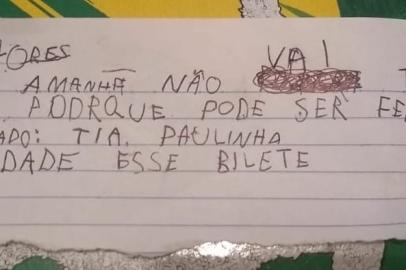 ORES
AMANHÃ NÃO VAI T
PODRQUE PODE SER FE
ADO: TIA. PAULINHA
DADE ESSE BILETE